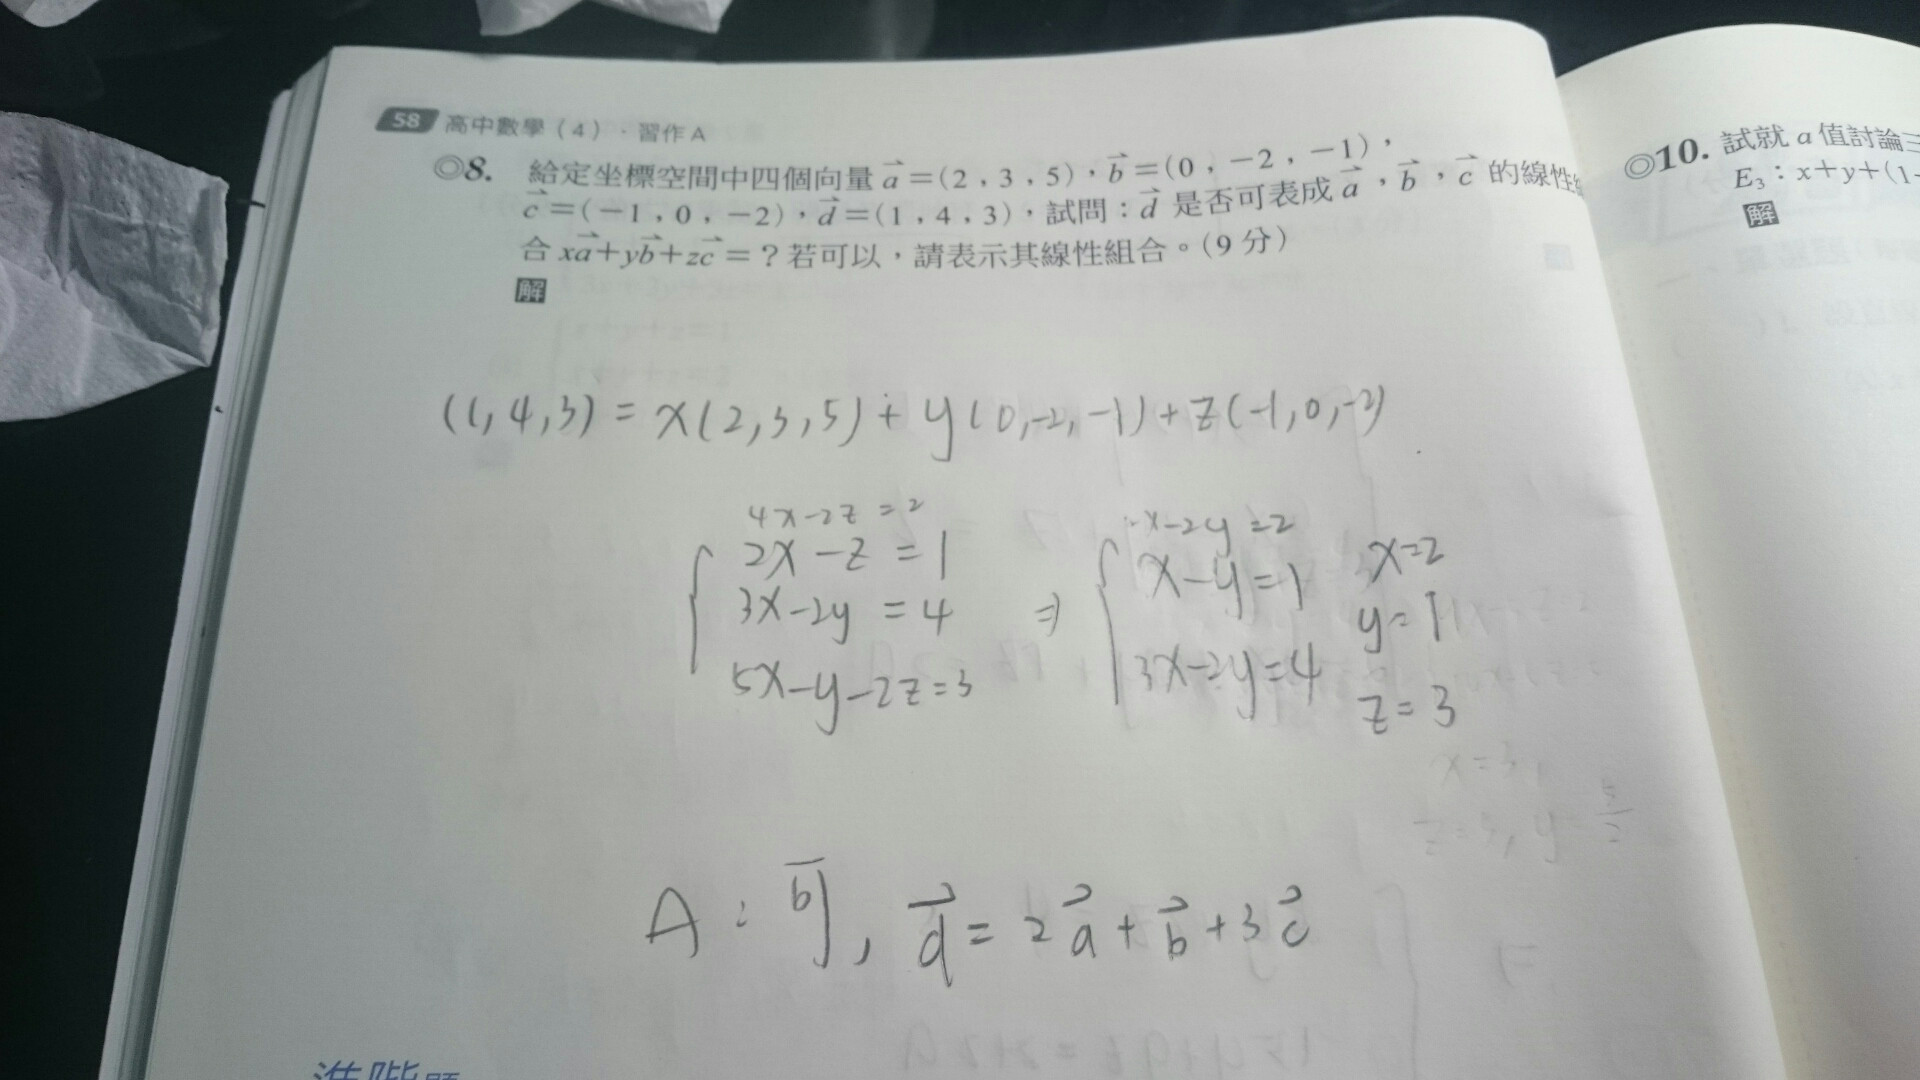 58 高中數學（4）．習作A
◎8. 給定坐標空間中四個向量 a⃗=(2，3，5)，b⃗=(0，−2，−1)，
c⃗=(−1，0，−2)，d⃗=(1，4，3)，試問：d⃗ 是否可表成 a⃗，b⃗，c⃗ 的線性
合 xa⃗+yb⃗+zc⃗=？若可以，請表示其線性組合。(9分)
解
(1,4,3) = x(2,3,5) + y(0,-2,-1) + z(-1,0,-2)
4x-2z=2
2x-z=1
3x-2y=4
5x-y-2z=3
⇒
x-2y=2
x-y=1
3x-2y=4
x=2
y=1
z=3
A: 可, d⃗=2a⃗+b⃗+3c⃗
進階題
◎10. 試就 a 值討論三
E₃：x+y+(1-
解